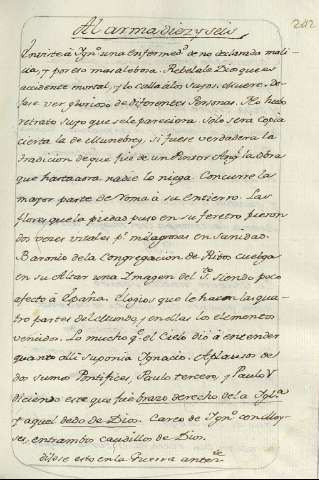 Al arma dionyseis
202
Enviste à Ign.º una Enfermed.d de no declarada mali-
cia, y por eso mas alebosa. Rebelale Dios que es
accidente mortal, y lo calla à los suyos. Muere. de-
jase ver glorioso de diferentes Personas. No hubo
retrato suyo que se le pareciera. Solo sera copia
cierta la de Munebrej, si fuere verdadera la
tradicion de que fue de un Pintor Ang.l la obra
que hasta aora nadie lo niega. Concurre la
mayor parte de Roma à su entierro. Las
flores que la piedad puso en su feretro fueron
dos veces vitales p.r milagrosas en sanidad.
Baronio de la Congregacion de Ritos cuelga
en su Altar una Imagen del S.to siendo poco
afecto à España. Elogios que le hacen las qua-
tro partes del Mundo, y en ellas los elementos
venidos. Lo mucho q.e el Cielo diò à entender
quanto allì suponia Ignacio. Aplausos de
dos sumos Pontifices, Paulo tercero, y Paulo V
diciendo este que fue brazo derecho de la Igl.ª
y aquel dedo de Dios. Careo de Ign.º con Moy-
ses, entrambos caudillo de Dios.
dijose esto en la Guerra antec.te